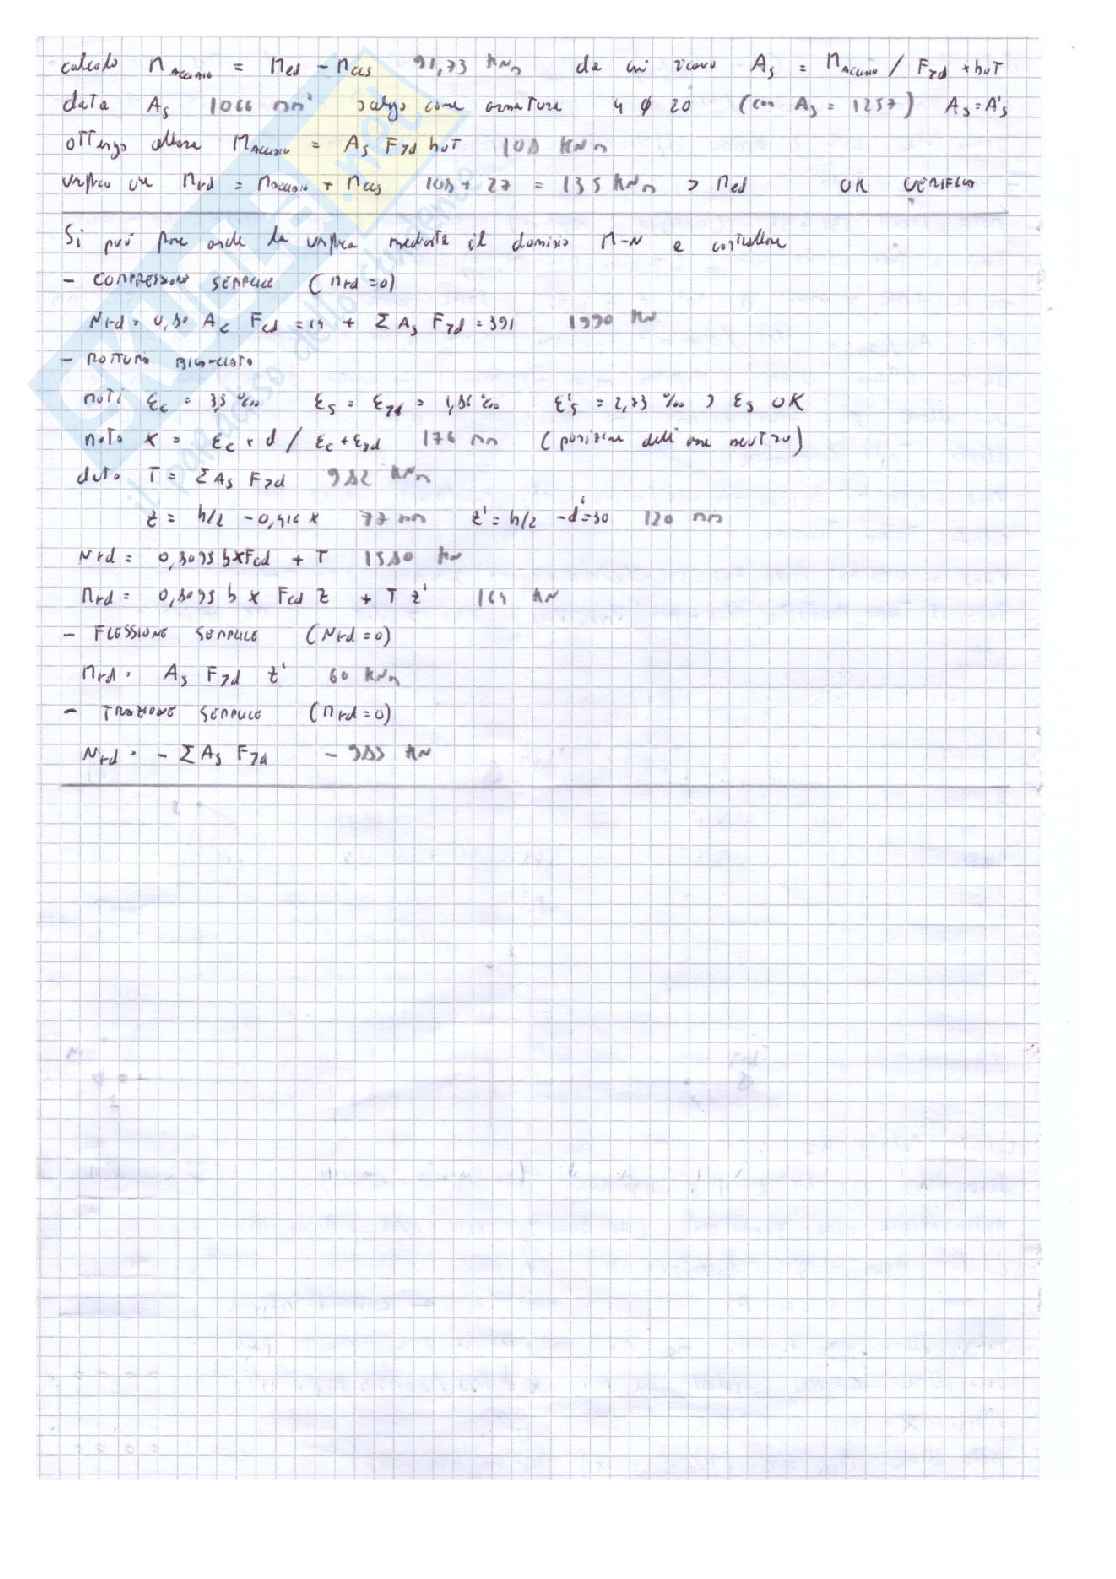 calcolo M acciaio = Med - Mcls 91,73 kNm da cui ricavo As = M acciaio / Fyd * hut
data As 1066 mm² salgo come armature 4 ø 20 (con As = 1257) As = A's
ottengo allora M acciaio = As Fyd hut 108 kNm
verifico che Mrd = M acciaio + Mcls 108 + 27 = 135 kNm > Med OK VERIFICA
Si può fare anche la verifica mediante il dominio M-N e controllare
- COMPRESSIONE SEMPLICE (Mrd=0)
Nrd = 0,80 Ac Fcd = 14 + Σ As Fyd = 391 1990 kN
- ROTTURA BILANCIATA
noti εc = 3,5 ‰ εs = εyd = 1,86 ‰ ε's = 2,73 ‰ > εs OK
noto x = εc * d / εc + εyd 176 mm (posizione dell'asse neutro)
dato T = Σ As Fyd 982 kNm
z = h/2 - 0,416 x 77 mm z' = h/2 - d' = 30 120 mm
Nrd = 0,8095 b x Fcd + T 1580 kN
Mrd = 0,8095 b x Fcd z + T z' 164 kN
- FLESSIONE SEMPLICE (Nrd=0)
Mrd = As Fyd z' 60 kNm
- TRAZIONE SEMPLICE (Mrd=0)
Nrd = - Σ As Fyd - 983 kN
SKUOLA.net
il paradiso dello studente